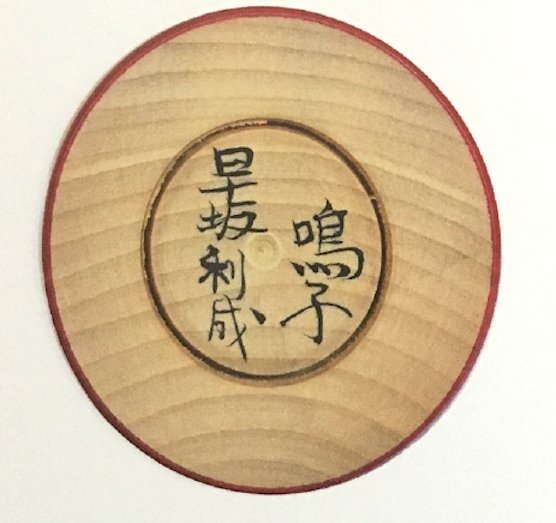 鳴子
早坂利成